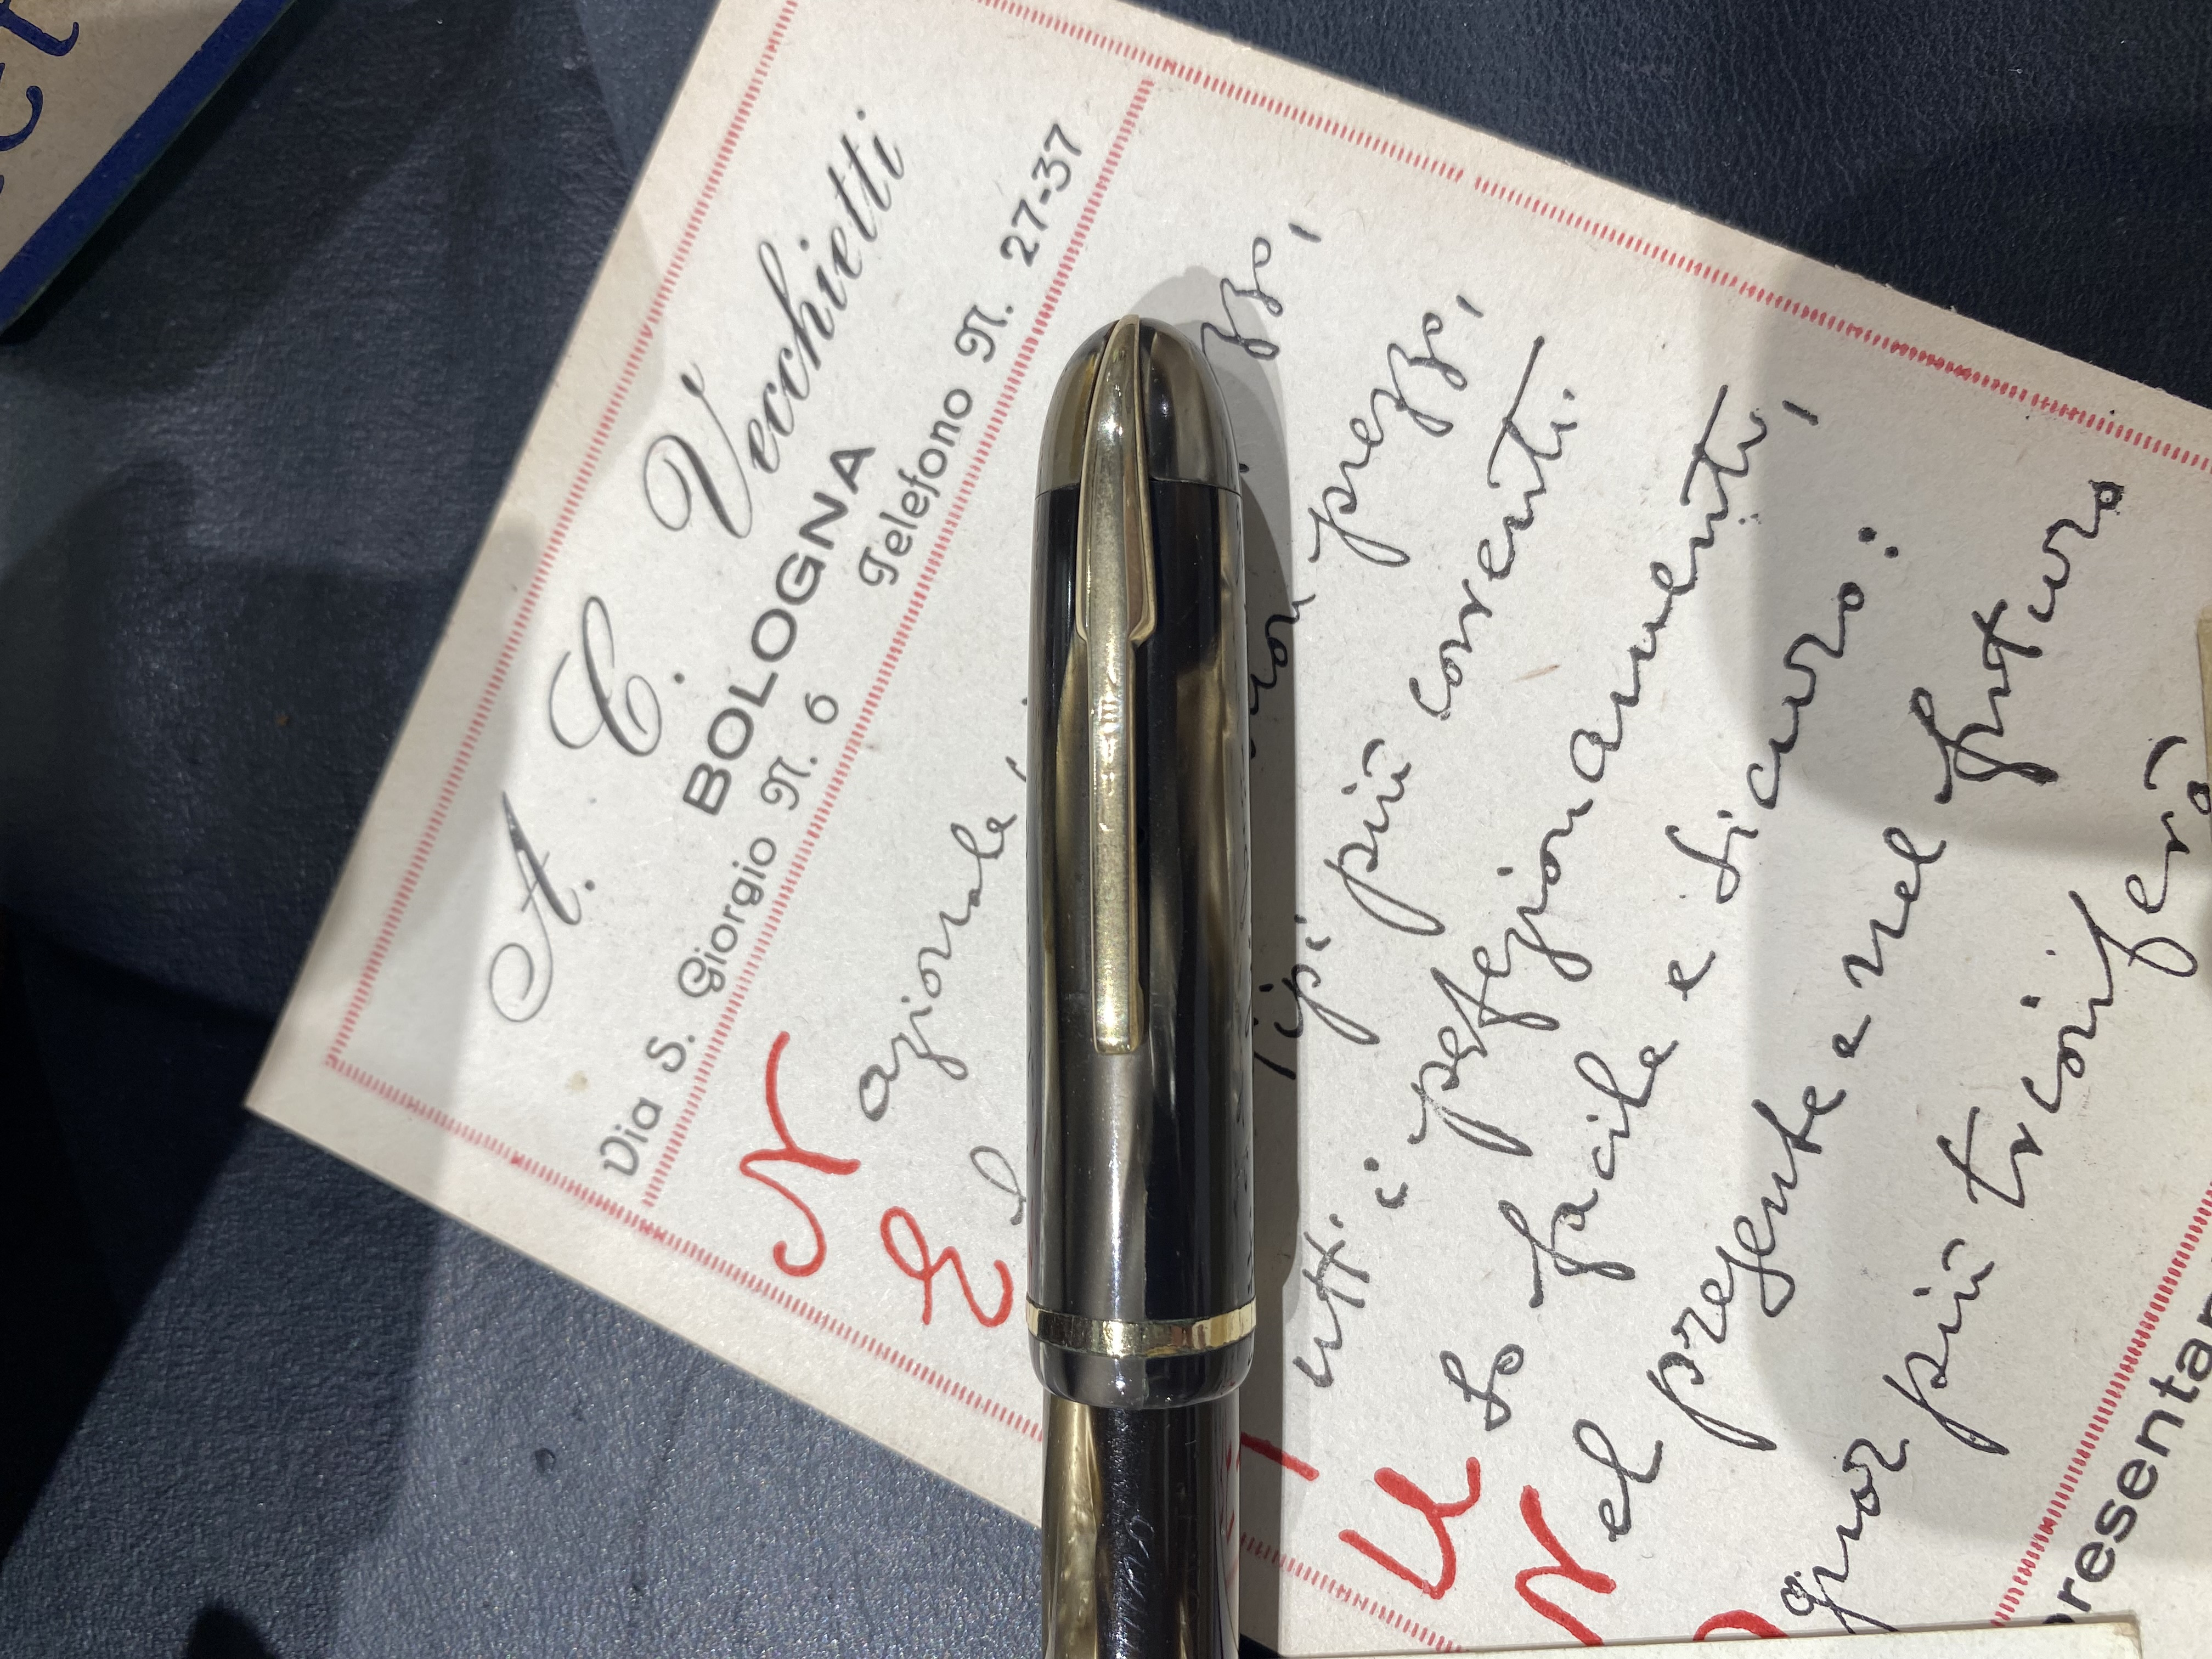 A. C. Vecchietti
BOLOGNA
Via S. Giorgio N. 6 Telefono N. 27-37
Nazionale, zzo,
El prezzo,
Tipi più correnti.
Tutti i perfezionamenti,
Uso facile e sicuro:
Nel presente e nel futuro
gnor più trionferà
presentar